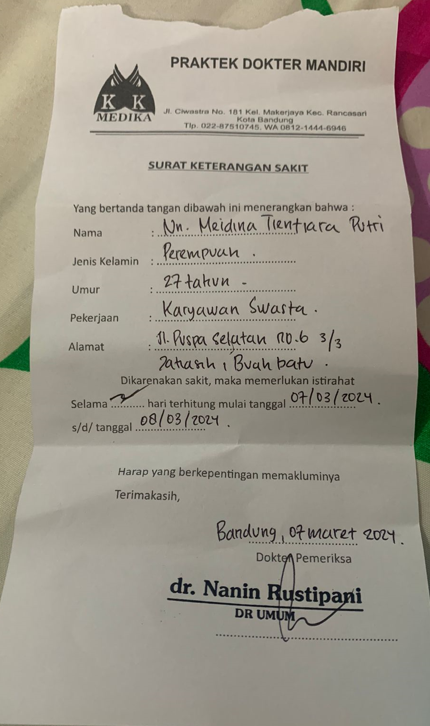 PRAKTEK DOKTER MANDIRI
K K
MEDIKA
Jl. Ciwastra No. 181 Kel. Mekarjaya Kec. Rancasari
Kota Bandung
Tlp. 022-87510745, WA 0812-1444-6946
SURAT KETERANGAN SAKIT
Yang bertanda tangan dibawah ini menerangkan bahwa :
Nama : Nn. Meidina Tientiara Putri
Jenis Kelamin : Perempuan .
Umur : 27 tahun -
Pekerjaan : Karyawan Swasta .
Alamat : Jl. Puspa Selatan no.6 3/3
Jatisari , Buah batu .
Dikarenakan sakit, maka memerlukan istirahat
Selama .......... hari terhitung mulai tanggal 07/03/2024 .
s/d/ tanggal 08/03/2024 .
Harap yang berkepentingan memakluminya
Terimakasih,
Bandung, 07 maret 2024 .
Dokter Pemeriksa
dr. Nanin Rustipani
DR UMUM